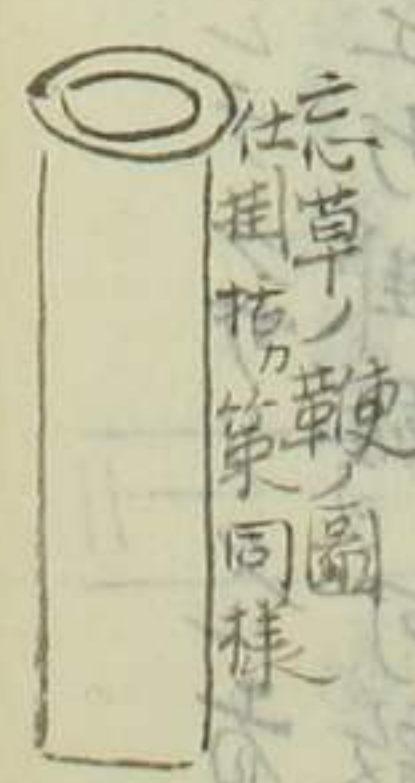 忘草ノ鞭ノ圖
仕掛括力第同様